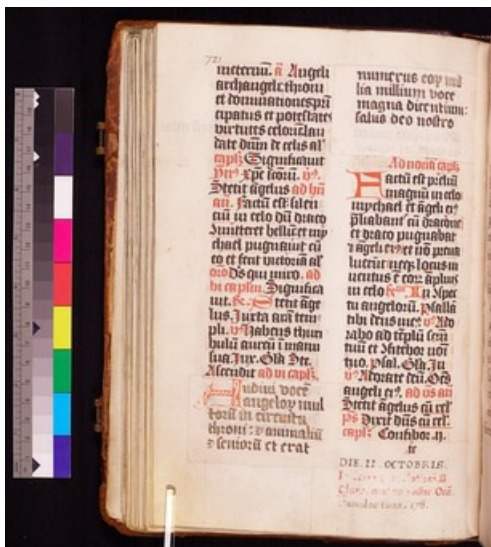 721
meternū. añ Angeli
archangeli: throni
et dominationes prī
cipatus et potestates
virtutes celorū lau
date dīum de celis al'
capl'. Significauit
Stetit āgelus ad hȳ
añ. Factū est silen
ciū in celo dū draco
cōmitteret bellū: et my
chael pugnauit cū
eo et fecit victoriā al'
oro Ds qui miro. ad
vi capl'm. Significa
uit. Stetit āge
lus. Iuxta arā tem
pli. Habens thuri
bulū aureū ī manu
sua. Iux. Gl'a Ste.
Ascendit ad vi capl'.
Audiui vocē
angelor mul
torū in circuitu
throni: & animaliū
& seniorū et erat
numerus eor mi
lia millium voce
magna dicentium:
salus deo nostro
Ad nonā capl'
Factū est preliū
magnū in celo
mychael et āgeli ei9
p̄liabant' cū dracone
et draco pugnabat
& āgeli ei9: et nō preua
luerūt: neq3 locus in
uentus ē eor āplius
in celo In cōspec
tu angelorū. Psallā
tibi deus me9. Ado
rabo ad tēplū scm
tuū et cōfitebor noī
tuo. Psal. Gl'a. In
Adorate deū. Oēs
angeli ei9. ad vs añ
Stetit āgelus cū rel'
ps Dixit dūs cū rel'.
capl'. Confitebor. ij.
DIE. II. OCTOBRIS.